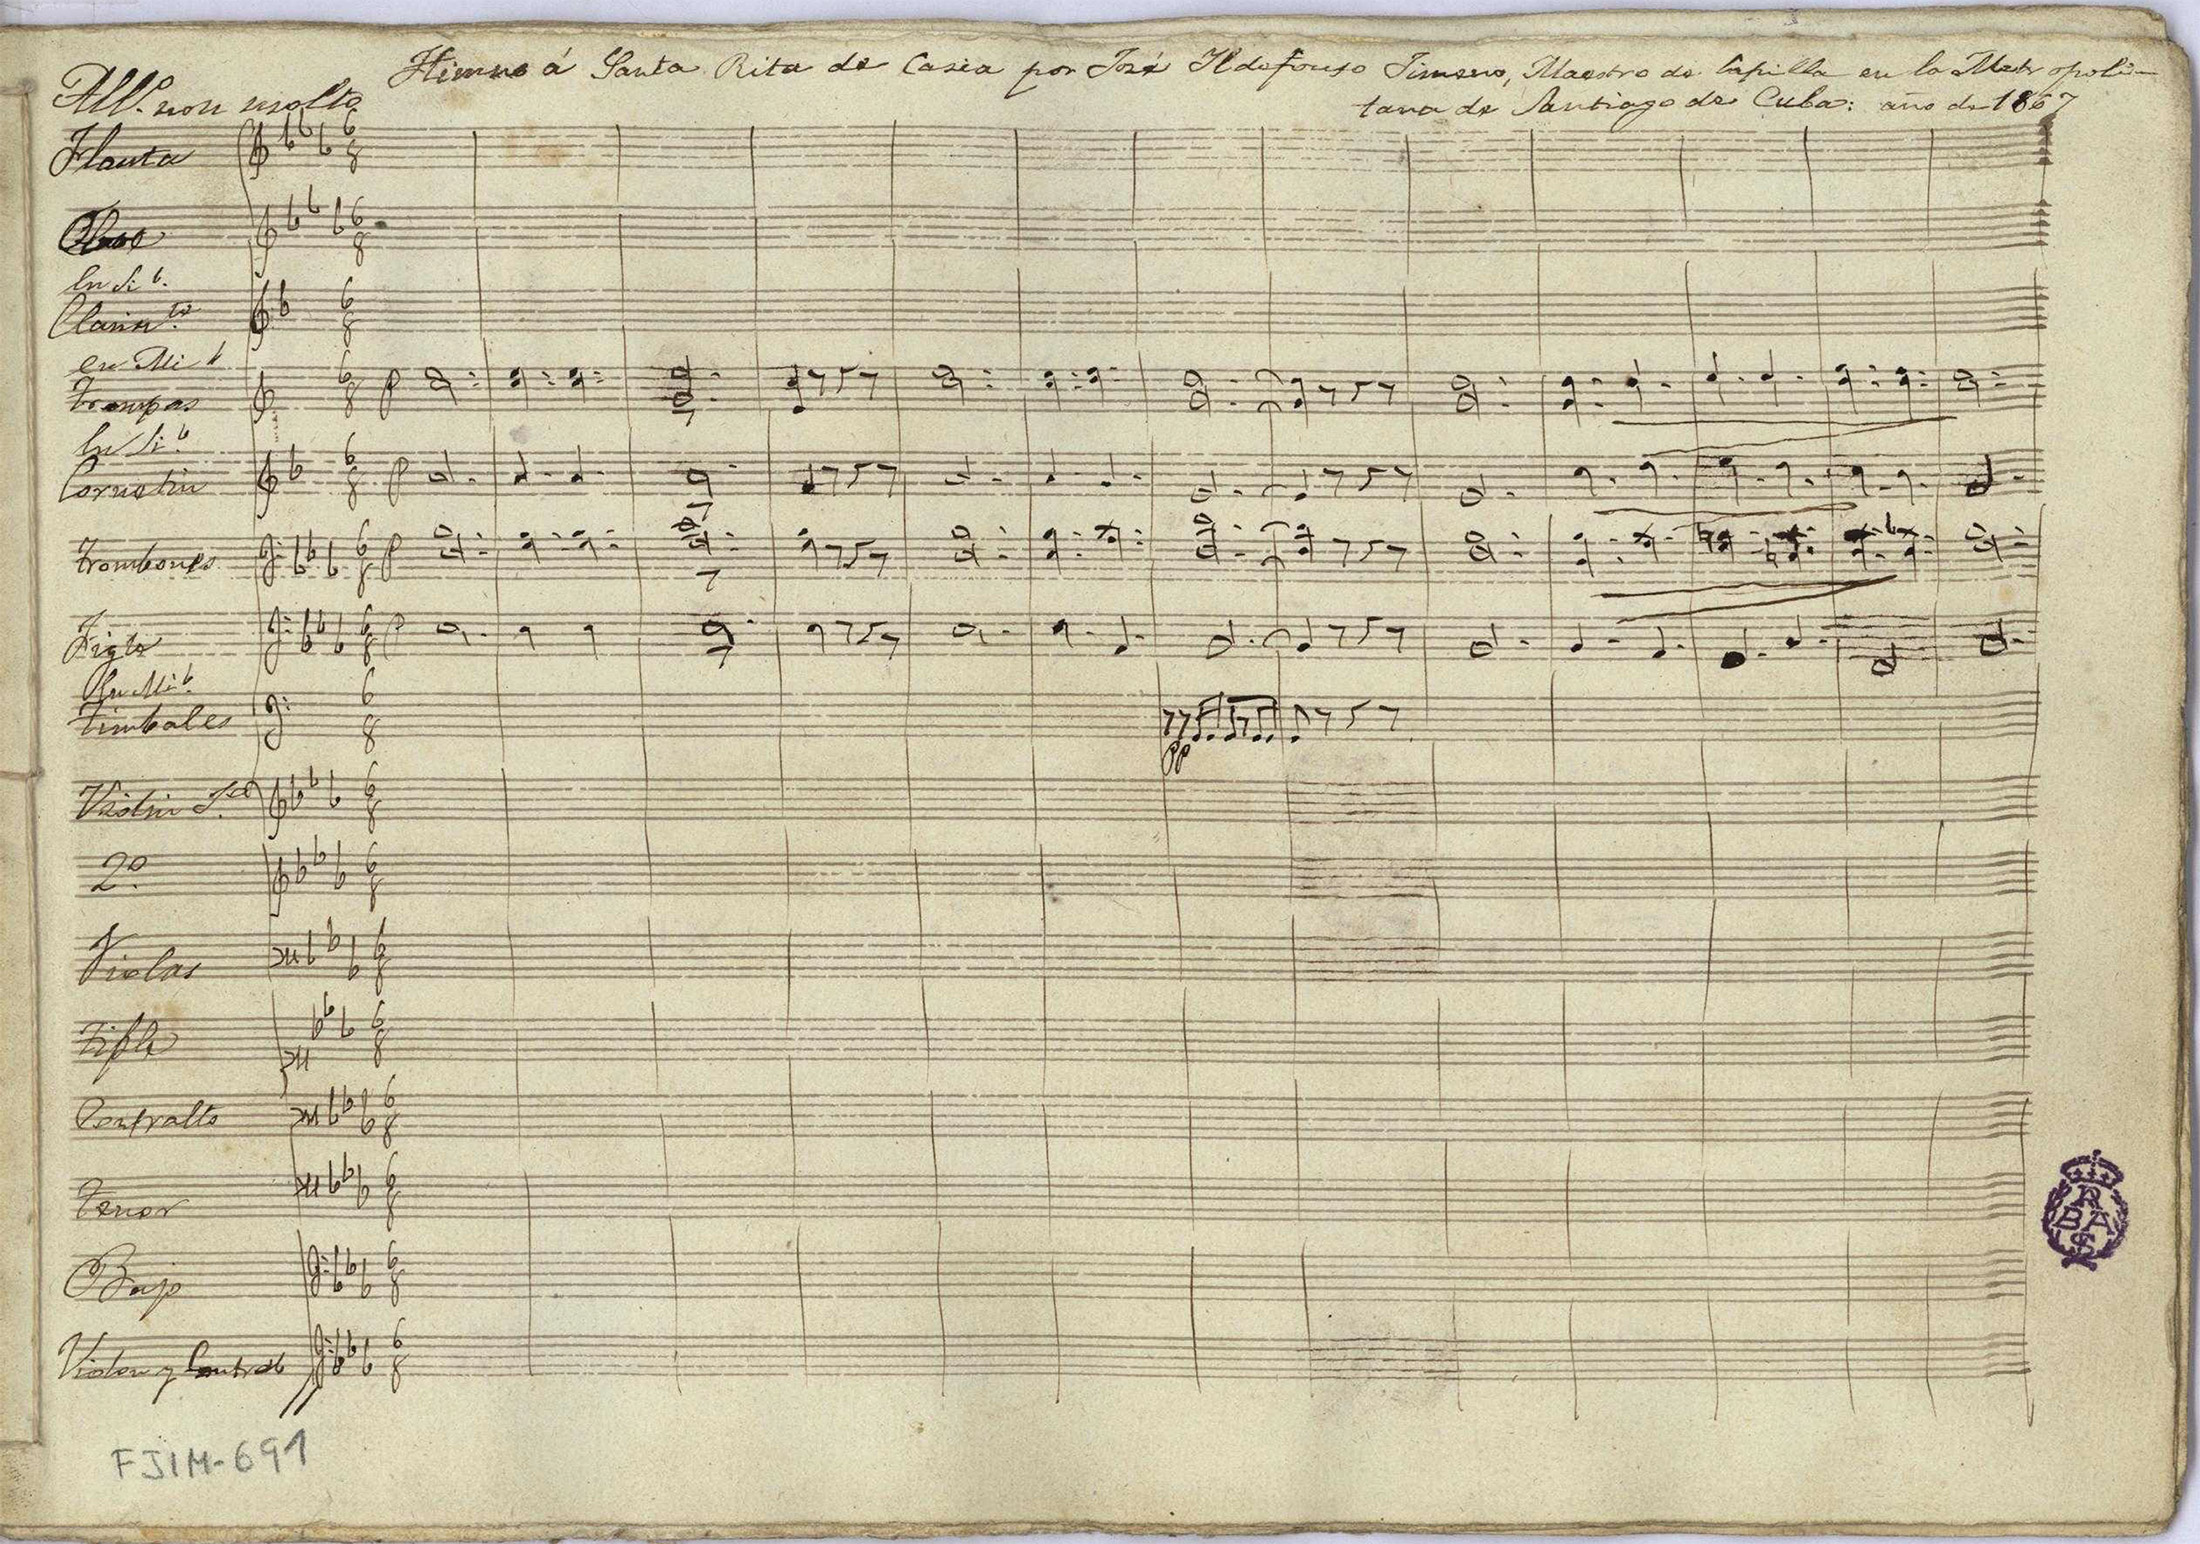 Himno á Santa Rita de Casia por José Ildefonso Jimeno, Maestro de Capilla en la Metropoli-
tana de Santiago de Cuba: año de 1867
All.º non molto
Flauta
Oboe
En Si b.
Clarin.te
en Mi b
Trompas
En Si b
Cornetin
Trombones
Figle
En Mi b.
Timbales
pp
Violin 1.º
2.º
Violas
Tiple
Contralto
Tenor
Bajo
Violon y Contrab
RABAS
FJIM-691